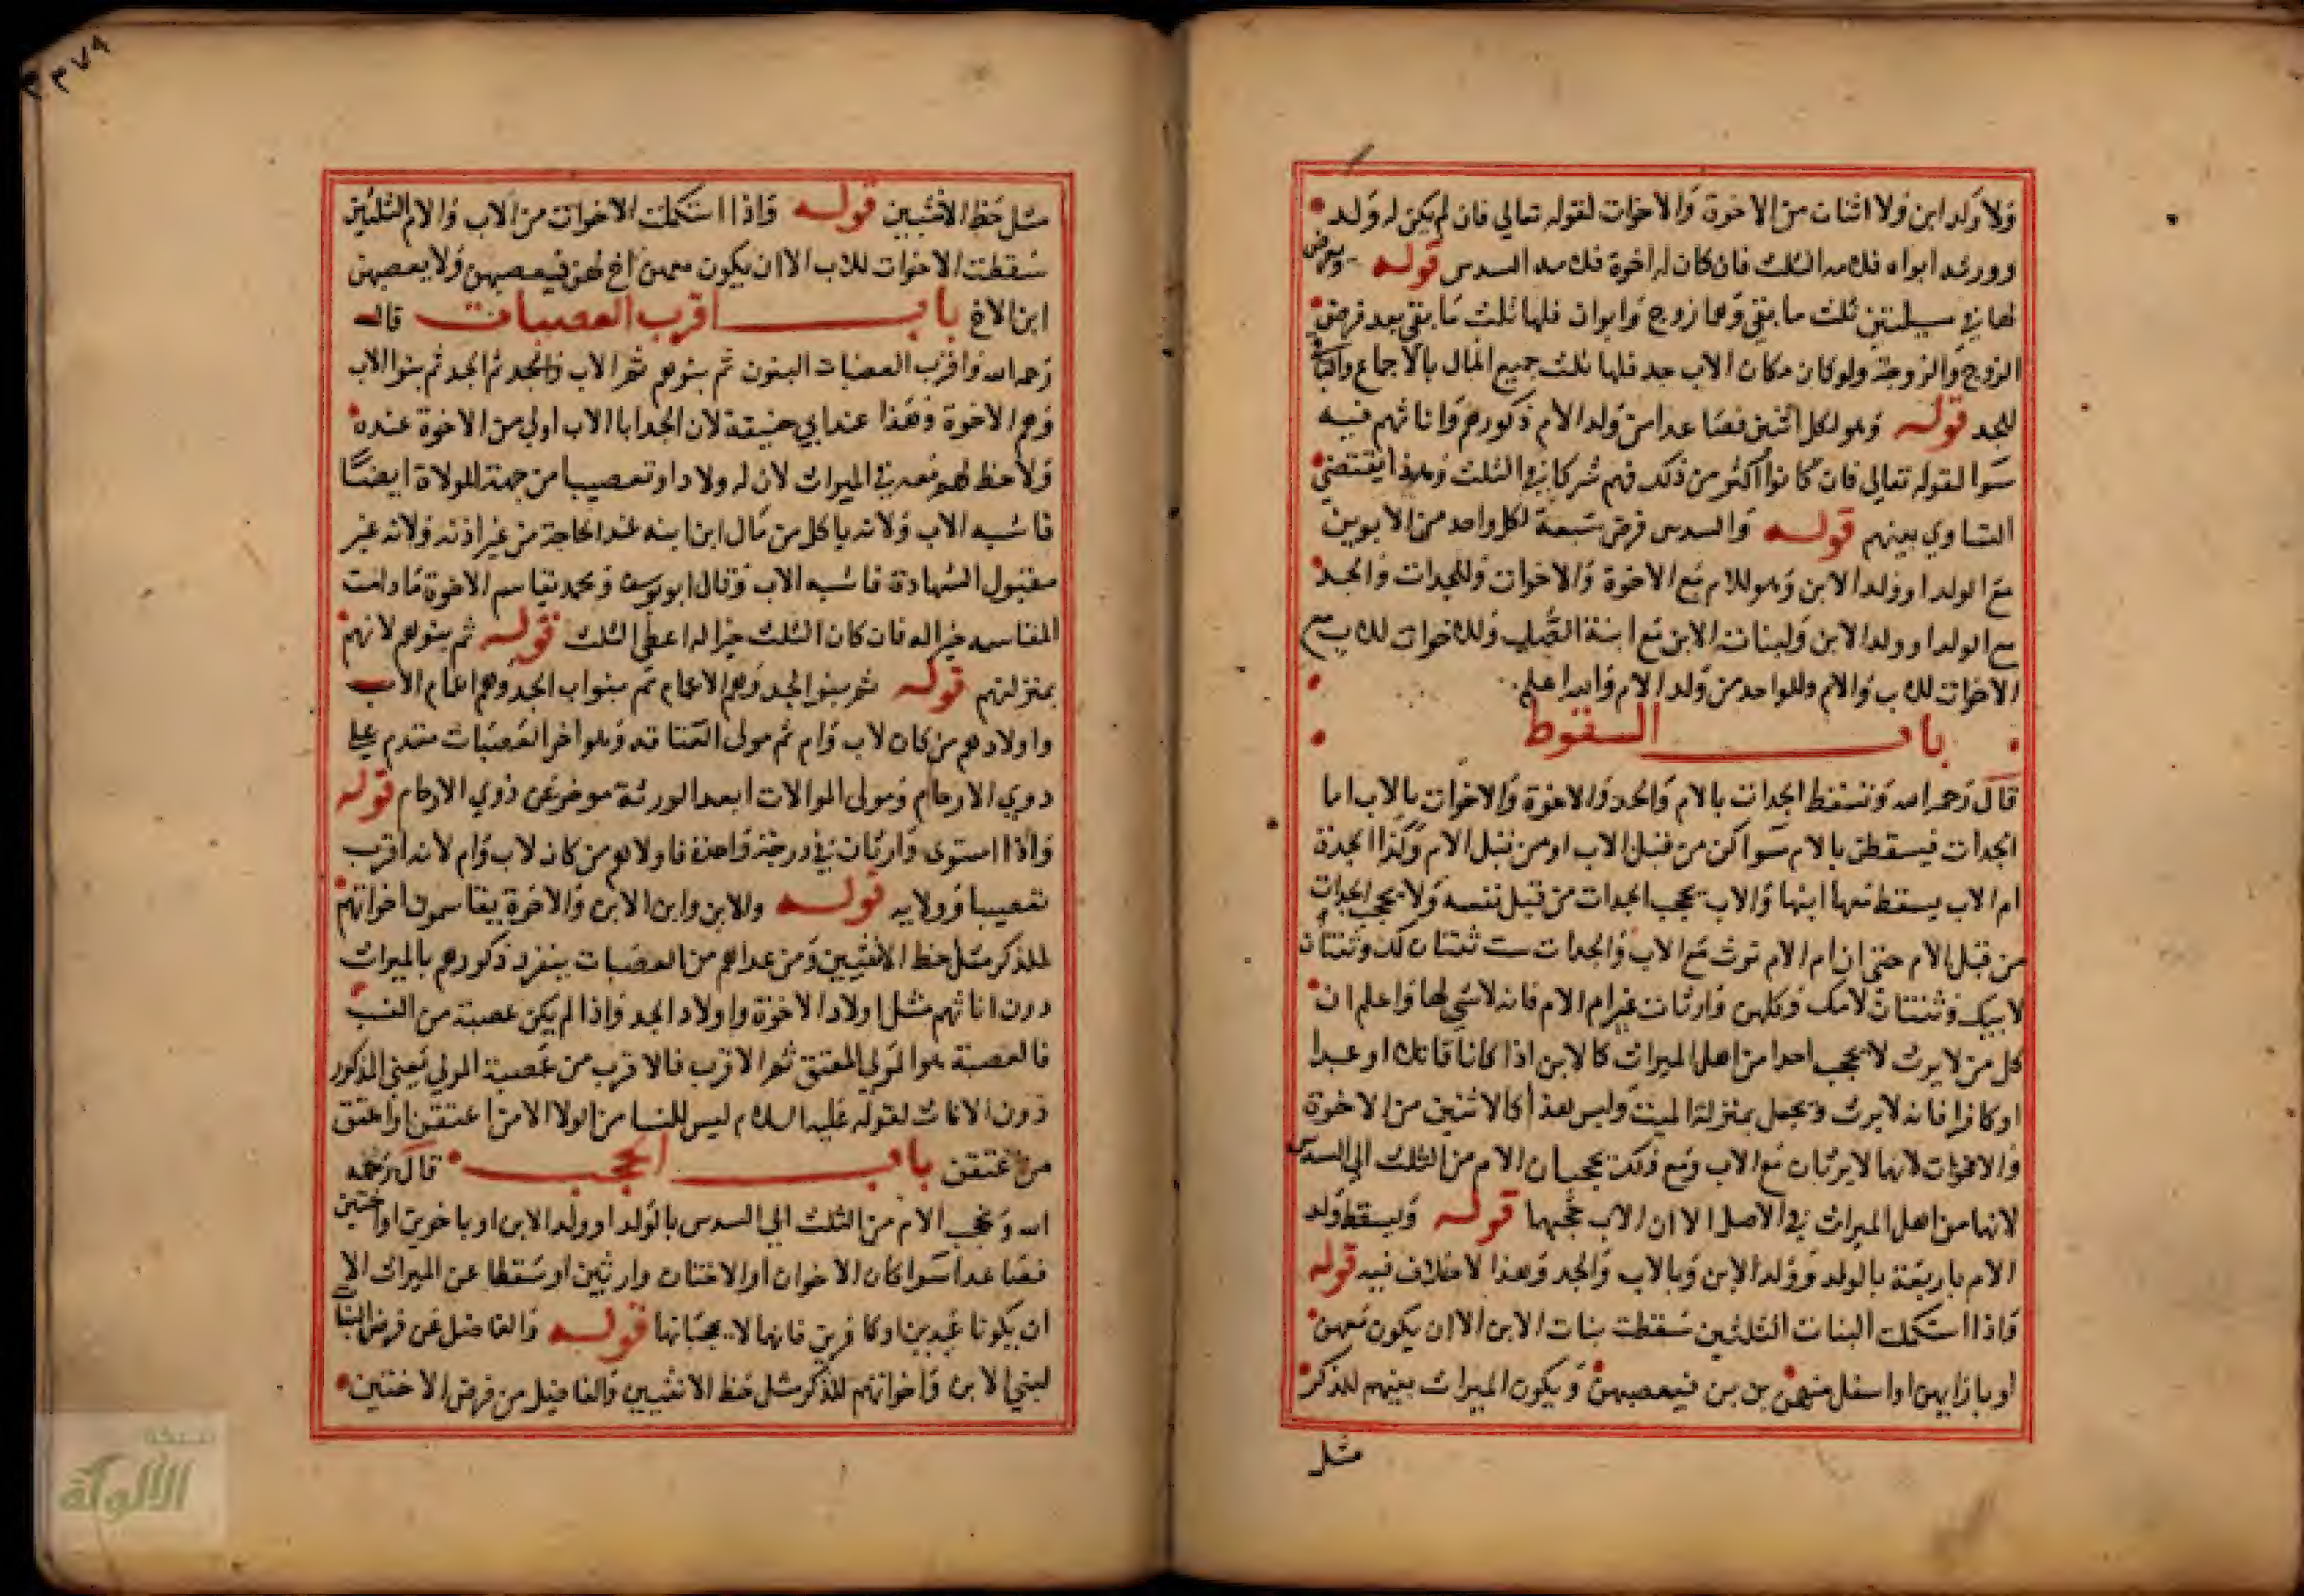 ولا ولد ابن ولا اثنان من الاخوة والاخوات لقوله تعالي فان لم يكن له ولد
وورثه ابواه فلامه الثلث فان كان له اخوة فلامه السدس قوله ويفرض
لها في مسيلتين ثلث ما بقي وهما زوج وابوان فلها ثلث ما بقي بعد فرض
الزوج والزوجة ولو كان مكان الاب جد فلها ثلث جميع المال بالاجماع والباقي
للجد قوله وهو لكل اثنين فصاعدا من ولد الام ذكورهم واناثهم فيه
سوا لقوله تعالي فان كانوا اكثر من ذلك فهم شركا في الثلث وهذا يقتضي
التساوي بينهم قوله والسدس فرض سبعة لكل واحد من الابوين
مع الولد او ولد الابن وهو للام مع الاخوة والاخوات وللجدات والجد
مع الولد او ولد الابن ولبنات الابن مع ابنة الصلب وللاخوات للاب مع
الاخوات للاب والام وللواحد من ولد الام والله اعلم
باب السقوط
قال رحمه الله وتسقط الجدات بالام والجد والاخوة والاخوات بالاب اما
الجدات فيسقطن بالام سوا كن من قبل الاب او من قبل الام وكذا الجدة
ام الاب يسقط معها ابنها والاب يحجب الجدات من قبل نفسه ولا يحجب الجدات
من قبل الام حتي ان ام الام ترث مع الاب والجدات ست ثنتان لك وثنتان
لابيك وثنتان لامك وكلهن وارثات غير ام الام فانه لا شي لها واعلم ان
كل من لا يرث لا يحجب احدا من اهل الميراث كالابن اذا كانا قاتلا او عبدا
او كافرا فانه لا يرث ويجعل بمنزلة الميت وليس هذا كالاثنين من الاخوة
والاخوات لانهما لا يرثان مع الاب ومع ذلك يحجبان الام من الثلث الي السدس
لانهما من اهل الميراث في الاصل الا ان الاب حجبهما قوله ويسقط ولد
الام باربعة بالولد وولد الابن وبالاب والجد وهذا لا خلاف فيه قوله
واذا استكمل البنات الثلثين سقطت بنات الابن الا ان يكون معهن
او بازايهن او اسفل منهن بن بن فيعصبهن ويكون الميراث بينهم للذكر
مثل
٣٧٩
مثل حظ الانثيين قوله واذا استكملت الاخوات من الاب والام الثلثين
سقطت الاخوات للاب الا ان يكون معهن اخ لهن فيعصبهن ولا يعصبهن
ابن الاخ باب اقرب العصبات قال
رحمه الله واقرب العصبات البنون ثم بنوهم ثم الاب والجد ثم الجد ثم بنو الاب
وهم الاخوة وهذا عند ابي حنيفة لان الجد ابا الاب اولي من الاخوة عنده
ولا حظ لهم معه في الميراث لان له ولادا وتعصيبا من جهة الولاة ايضا
فاشبه الاب ولانه ياكل من مال ابن ابنه عند الحاجة من غير اذنه ولانه غير
مقبول الشهادة فاشبه الاب وقال ابو يوسف ومحمد يقاسم الاخوة ما دامت
المقاسمه خير اله فان كان الثلث خير اله اعطي الثلث قوله ثم بنوهم لانهم
بمنزلتهم قوله ثم بنو الجد وهم الاعمام ثم بنو اب الجد وهم اعمام الاب
واولادهم من كان لاب وام ثم مولى العتاقه وهو اخر العصبات متقدم على
دوي الارحام ومولى الموالات ابعد الورثة موخر عن ذوي الارحام قوله
واذا استوى وارثان في درجة واحدة فاولاهم من كان لاب وام لانه اقرب
تعصيبا وولايه قوله والابن وابن الابن والاخوة يقاسمون اخواتهم
للذكر مثل حظ الانثيين ومن عداهم من العصبات ينفرد ذكورهم بالميراث
دون اناثهم مثل اولاد الاخوة واولاد الجد واذا لم يكن عصبة من النسب
فالعصبة هو المولي المعتق ثم الاقرب فالاقرب من عصبة المولي يعني الذكور
دون الاناث لقوله عليه السلام ليس للنسا من الولا الا من اعتقن او اعتق
من اعتقن باب الحجب قال رحمه
الله وتحجب الام من الثلث الي السدس بالولد او ولد الابن او باخوين او اختين
فصاعدا سوا كان الاخوان او الاختان وارثين او سقطا عن الميراث الا
ان يكونا عبدين او كافرين فانهما لا يحجبانها قوله والفاضل عن فرض البنات
لبني الابن واخواتهم للذكر مثل حظ الانثيين والفاضل من فرض الاختين
شبكة
الألوكة